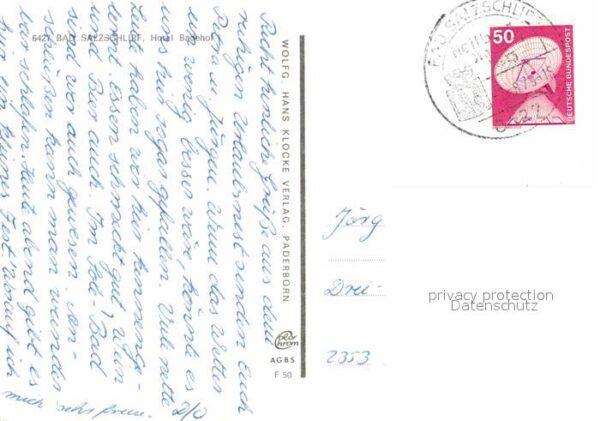 6427 BAD SALZSCHLIRF, Hotel Badehof
Recht herzliche Grüße aus dem
ruhigen Urlaubsort senden Euch
Papa u. Jürgen. Wenn das Wetter
ein wenig besser wär, könnte es
uns hier sogar gefallen. Viele nette
Leute haben wir hier kennenge-
lernt. Essen schmeckt gut, Wein
und Bier auch. Im Sole-Bad
sind wir auch gewesen. An-
schließend kann man wunder-
bar schlafen. Heut abend gibt es
ein kleines Fest. Worauf ich
mich sehr freue.
WOLFG. HANS KLOCKE VERLAG, PADERBORN
color
chrom
AGBS
F 50
BAD SALZSCHLIRF
50
DEUTSCHE BUNDESPOST
Jörg
Drei-
2353
privacy protection
Datenschutz